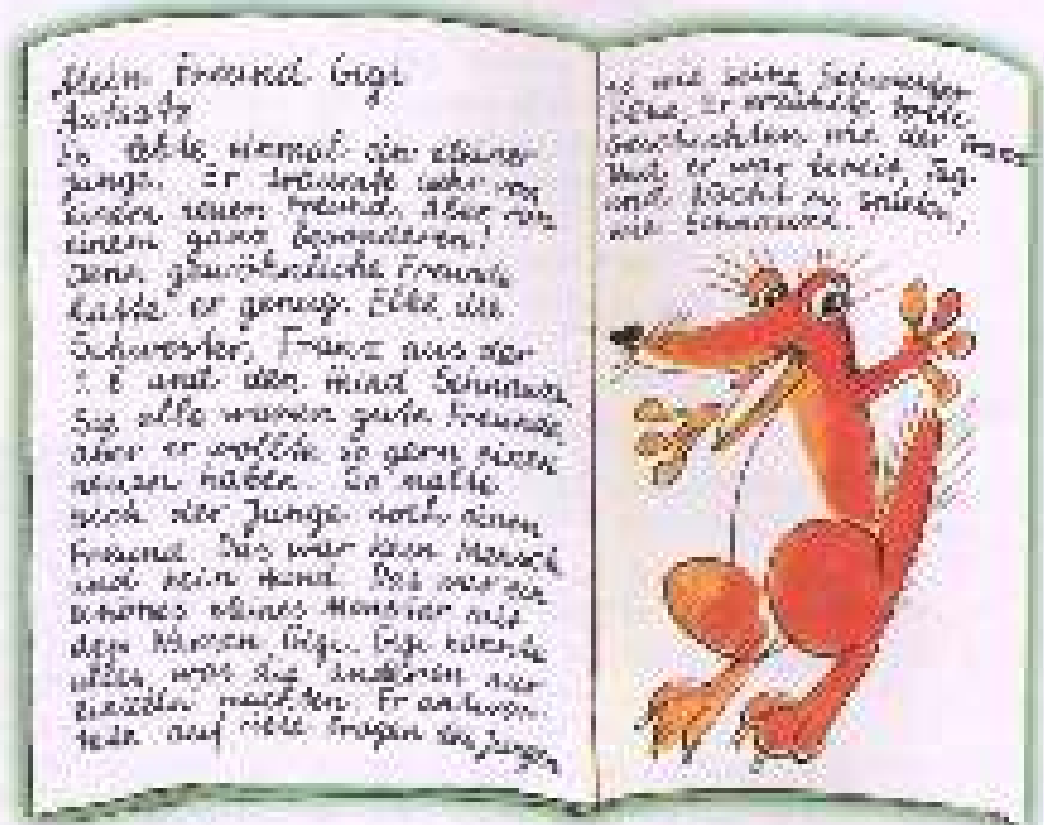 Mein Freund Gigi
Aufsatz
Es lebte einmal ein kleiner
Junge. Er träumte sehr von
einem neuen Freund. Aber von
einem ganz besonderen!
Denn gewöhnliche Freunde
hatte er genug. Elke, die
Schwester, Franz aus der
und den Hund Schnauze
Sie alle waren gute Freunde,
aber er wollte so gern einen
neuen haben. So malte
sich der Junge noch einen
Freund. Das war kein Mensch
und kein Hund. Das war ein
schönes kleines Monster mit
dem Namen Gigi. Gigi konnte
alles, was die anderen nur
einzeln machten. Er antwor-
tete auf viele Fragen des Jungen
so wie seine Schwester
Elke. Er erzählte tolle
Geschichten wie der Franz
Und er war bereit, Tag
und Nacht zu spielen,
wie Schnauze.